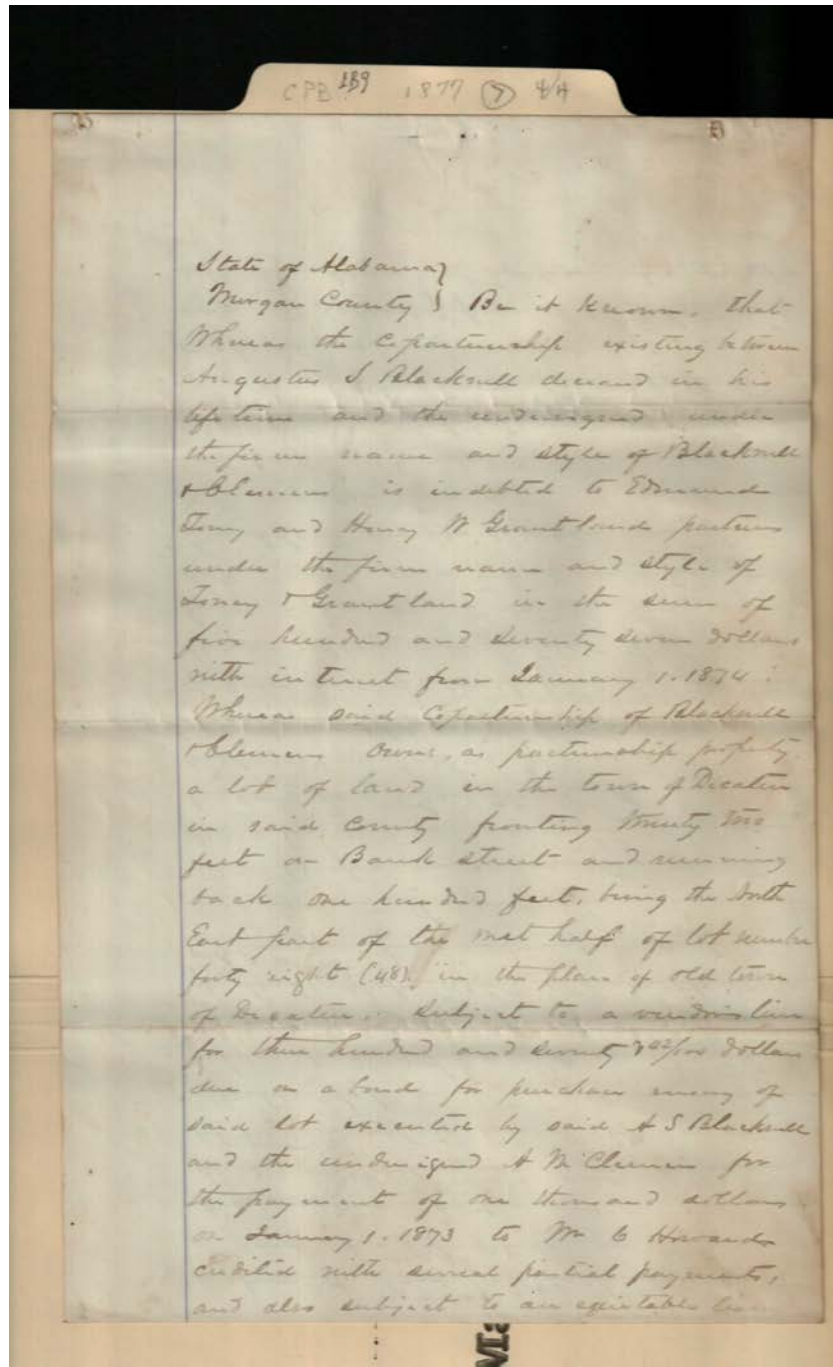 CPB 189 1877 (7) 4/4
State of Alabama}
Morgan County } Be it Known, that
Whereas the Copartnership existing between
Augustus S Blackwell deceased in his
life time and the undersigned under
the firm name and style of Blackwell
& Clemens is indebted to Edmund
Toney and Henry W Grantland partners
under the firm name and style of
Toney & Grantland in the sum of
five hundred and seventy seven dollars
with interest from January 1. 1874:
Whereas said Copartnership of Blackwell
& Clemens owns, as partnership property
a lot of land in the town of Decatur
in said County fronting twenty two
feet on Bank street and running
back one hundred feet, being the North
East part of the west half of lot number
forty eight (48), in the plan of old town
of Decatur. Subject to a vendors lien
for three hundred and seventy dollars
due on a bond for purchase money of
said lot executed by said A S Blackwell
and the undersigned A M Clemens for
the payment of one thousand dollars
on January 1. 1873 to Wm C Howards
credited with several partial payments,
and also subject to an equitable lien
Ma